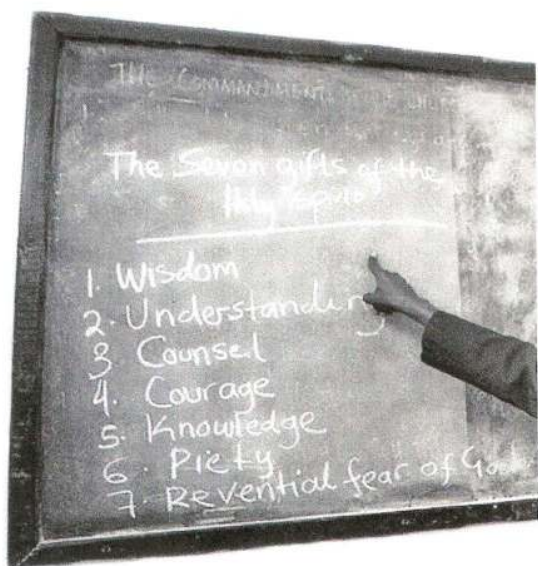 THE COMMANDMENTS
The Sevon gifts of the
Holy Spirit
1. Wisdom
2. Understanding
3 Counsel
4. Courage
5. Knowledge
6. Piety
7. Revential fear of God